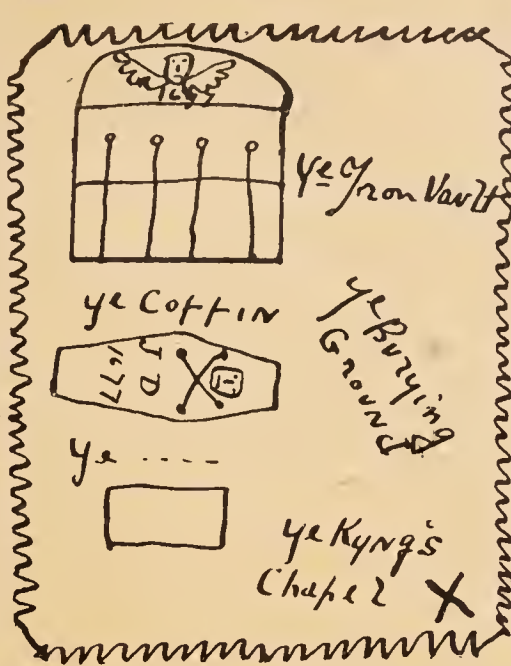 1677
Ye Iron Vault
ye Coffin
J D
1677
ye Burying
Ground
Ye .....
ye Kyng's
Chapel X